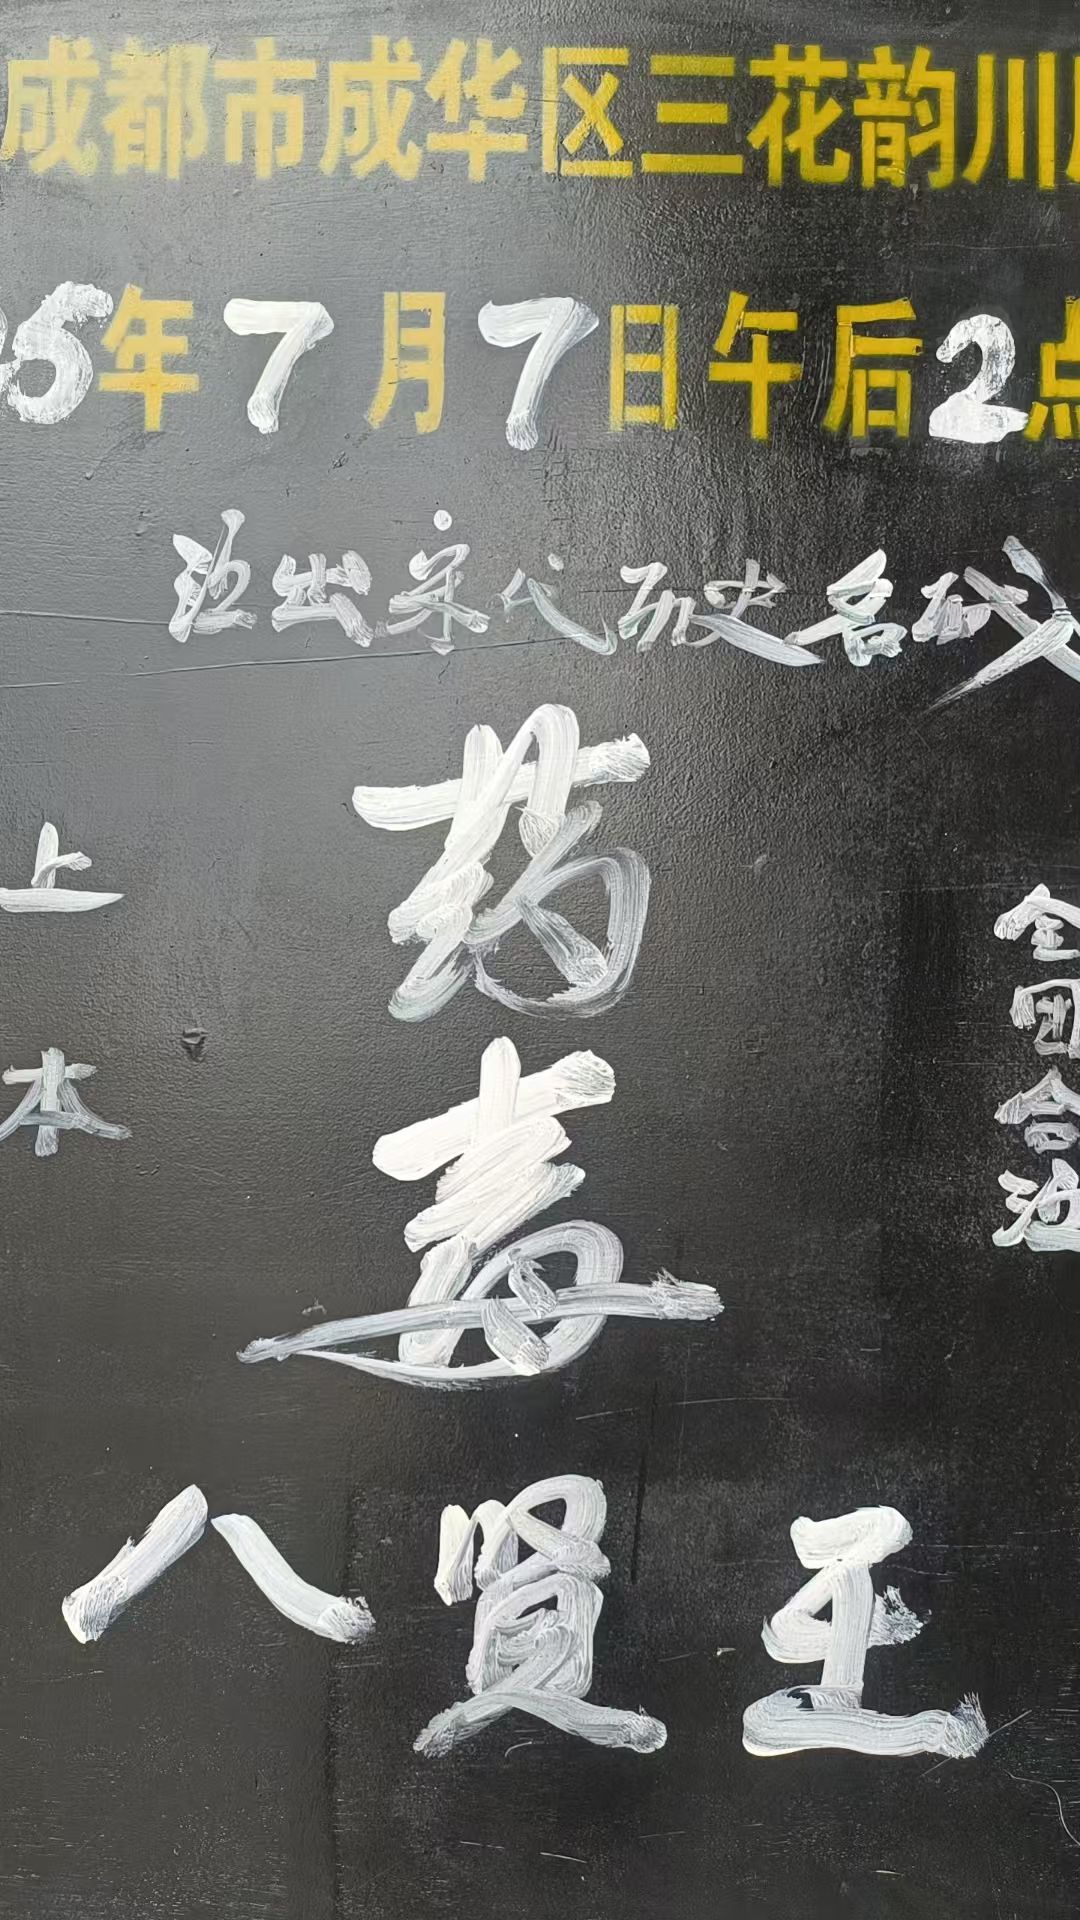 成都市成华区三花韵川
5年7月7日午后2点
演出宋代历史名戏
上
本
药
毒
八贤王
全
团
合
演